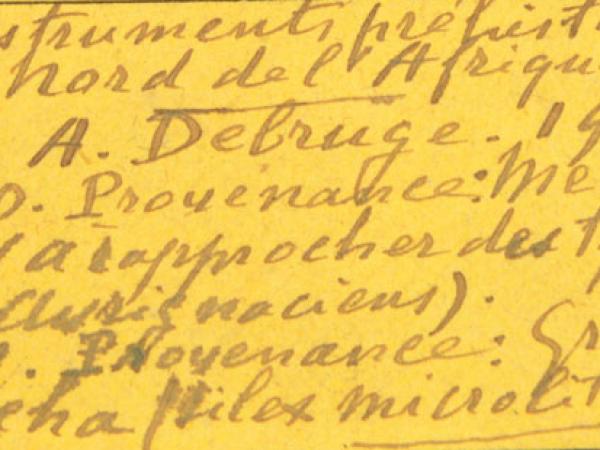 struments préhist
nord del'Afriqu
A. Debruge. 19
o. Provenance: Me
(a rapprocher des t
Aurignaciens).
. Provenance: Gr
cha (silex microlit